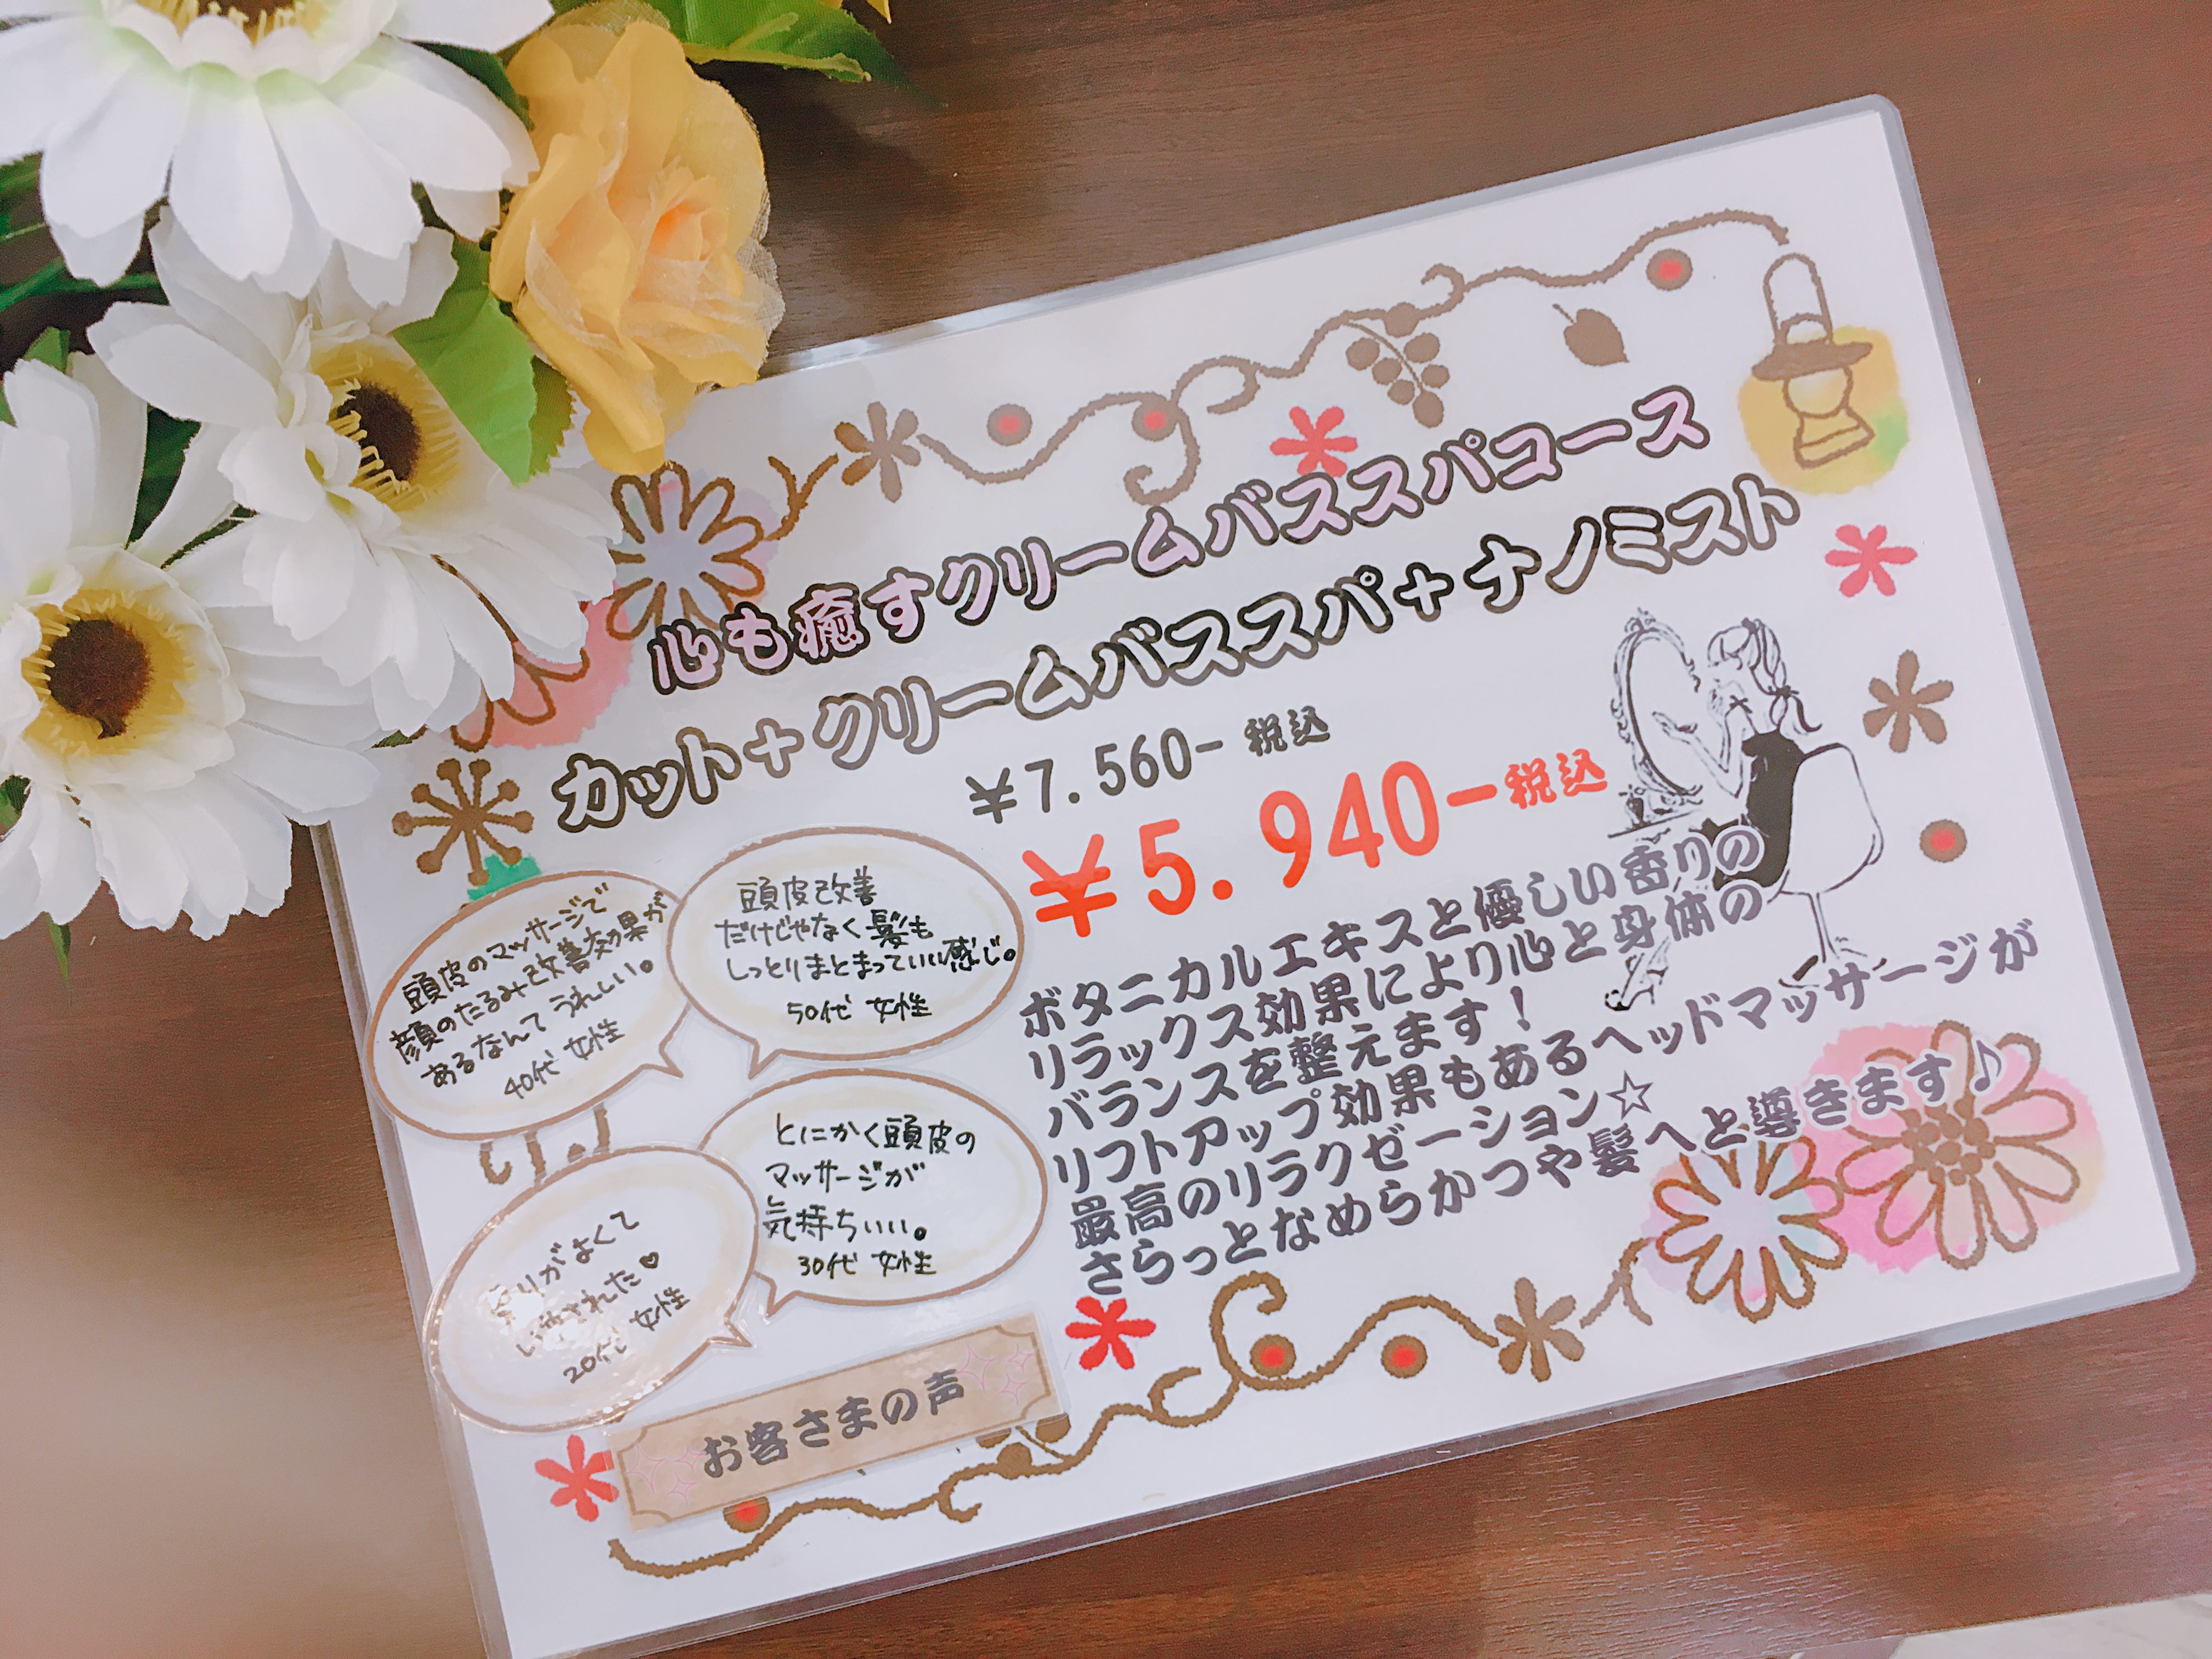 心も癒すクリームバススパコース
カット+クリームバススパ+ナノミスト
¥7.560-税込
¥5.940-税込
ボタニカルエキスと優しい香りの
リラックス効果により心と身体の
バランスを整えます!
リフトアップ効果もあるヘッドマッサージが
最高のリラクゼーション☆
さらっとなめらかつや髪へと導きます♪
頭皮のマッサージで
顔のたるみ改善効果が
あるなんてうれしい。
40代 女性
頭皮改善
だけじゃなく髪も
しっとりまとまっていい感じ。
50代 女性
とにかく頭皮の
マッサージが
気持ちいい。
30代 女性
香りがよくて
いやされた♡
20代 女性
お客さまの声